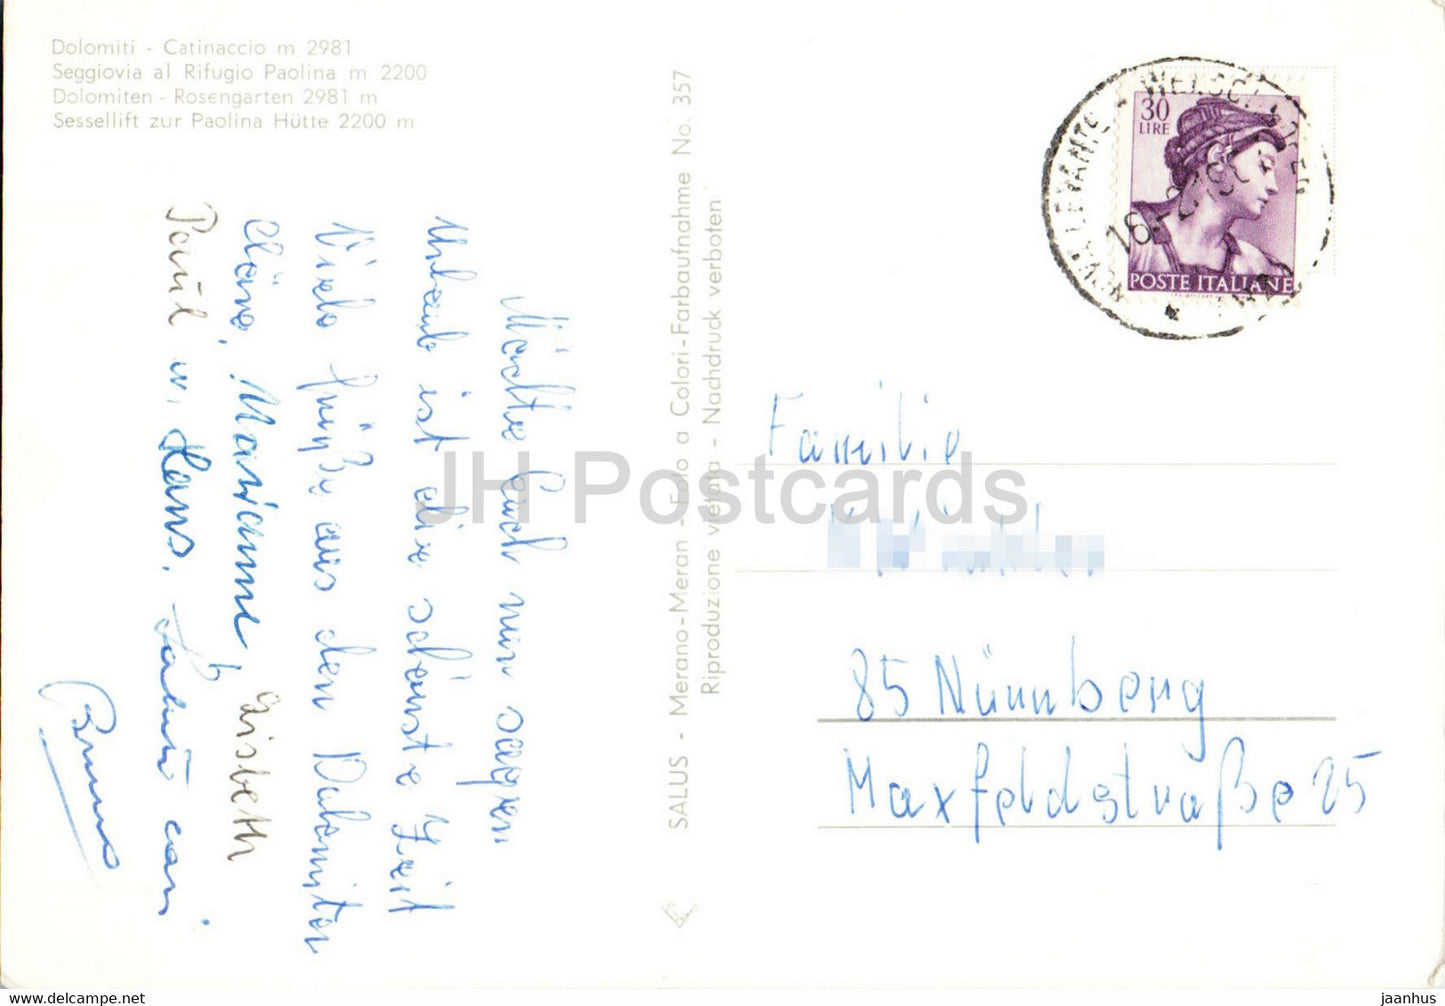 Dolomiti - Catinaccio m 2981
Seggiovia al Rifugio Paolina m 2200
Dolomiten - Rosengarten 2981 m
Sessellift zur Paolina Hütte 2200 m
Möchte Euch nur sagen
Urlaub ist die schönste Zeit
Viele Grüße aus den Dolomiten
Cläre, Marianne, Lisbeth
Paul u. Hans. Saluti cari
Bruno
SALUS - Merano-Meran - Foto a Colori-Farbaufnahme No. 357
Riproduzione vietata - Nachdruck verboten
30
LIRE
POSTE ITALIANE
NOVA LEVANTE
Familie
85 Nürnberg
Maxfeldstraße 25
JH Postcards
www.jhpostcards.com
jaanhus